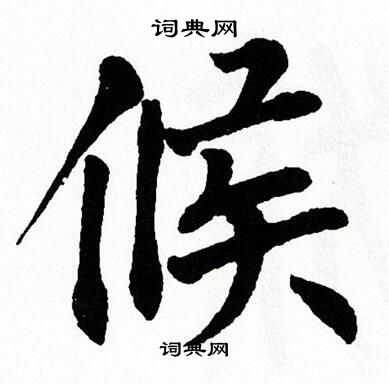 词典网
候
词典网